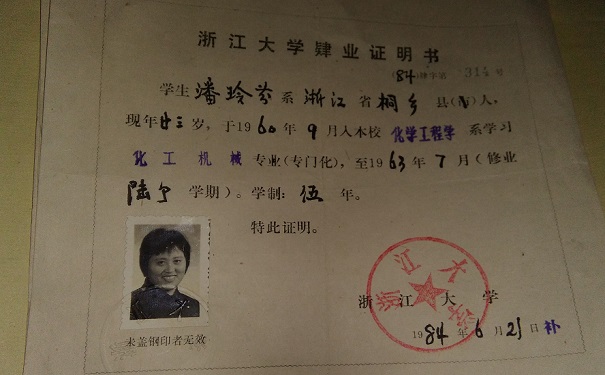 浙江大学肄业证明书
(84)肄字第 314 号
学生 潘玲芬 系 浙江 省 桐乡 县(市)人,
现年廿三岁,于1960年9月入本校 化学工程学 系学习
化工机械 专业(专门化),至1963年7月(修业
陆个 学期)。学制:伍 年。
特此证明。
浙江大学
浙江大学
1984年6月25日补
未盖钢印者无效